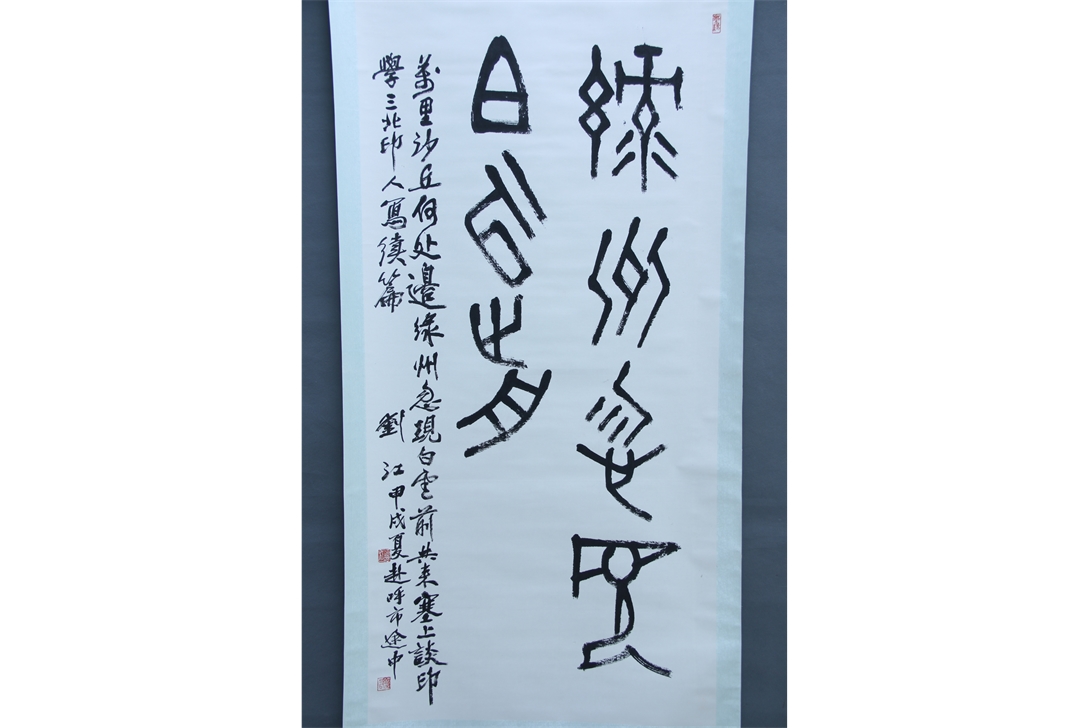 绿州忽現
白云前
萬里沙丘何处邊緑州忽現白雲前共来塞上談印
學三北印人寫續篇
劉江甲戌夏赴呼市途中